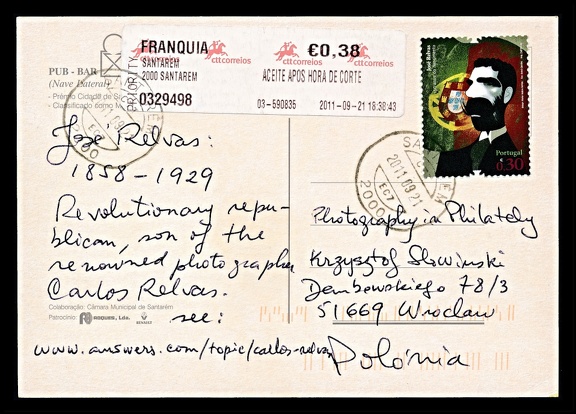 FRANQUIA
SANTARÉM
2000 SANTAREM
PRIORITY
0329498
ctt correios
ctt correios
ctt correios
€0,38
ACEITE APOS HORA DE CORTE
03-590835 2011-09-21 18:38:43
José Relvas
Portugal
€ 0.30
PUB - BAR
(Nave Lateral)
- Prémio Cidade de S
- Classificado como M
2011.09.21
EC7
2000
SANTARÉM
2011.09.21
EC7
2000
José Relvas:
1858-1929
Revolutionary repu-
blican, son of the
renowned photographer
Carlos Relvas.
see:
www.answers.com/topic/carlos-relvas
Colaboração: Câmara Municipal de Santarém
Patrocínio: ROQUES, Lda. RENAULT
Photography in Philately
Krzysztof Slowinski
Dembowskiego 78/3
51669 Wroclaw
Polónia